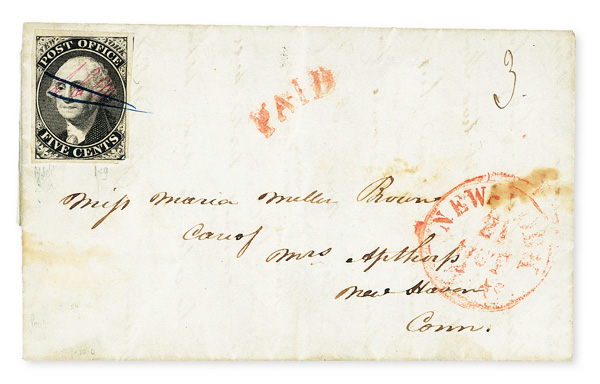 POST OFFICE
FIVE CENTS
PAID
3
NEW
21
Miss Maria Miller Brown
Care of
Mrs Apthorp
New Haven
Conn.